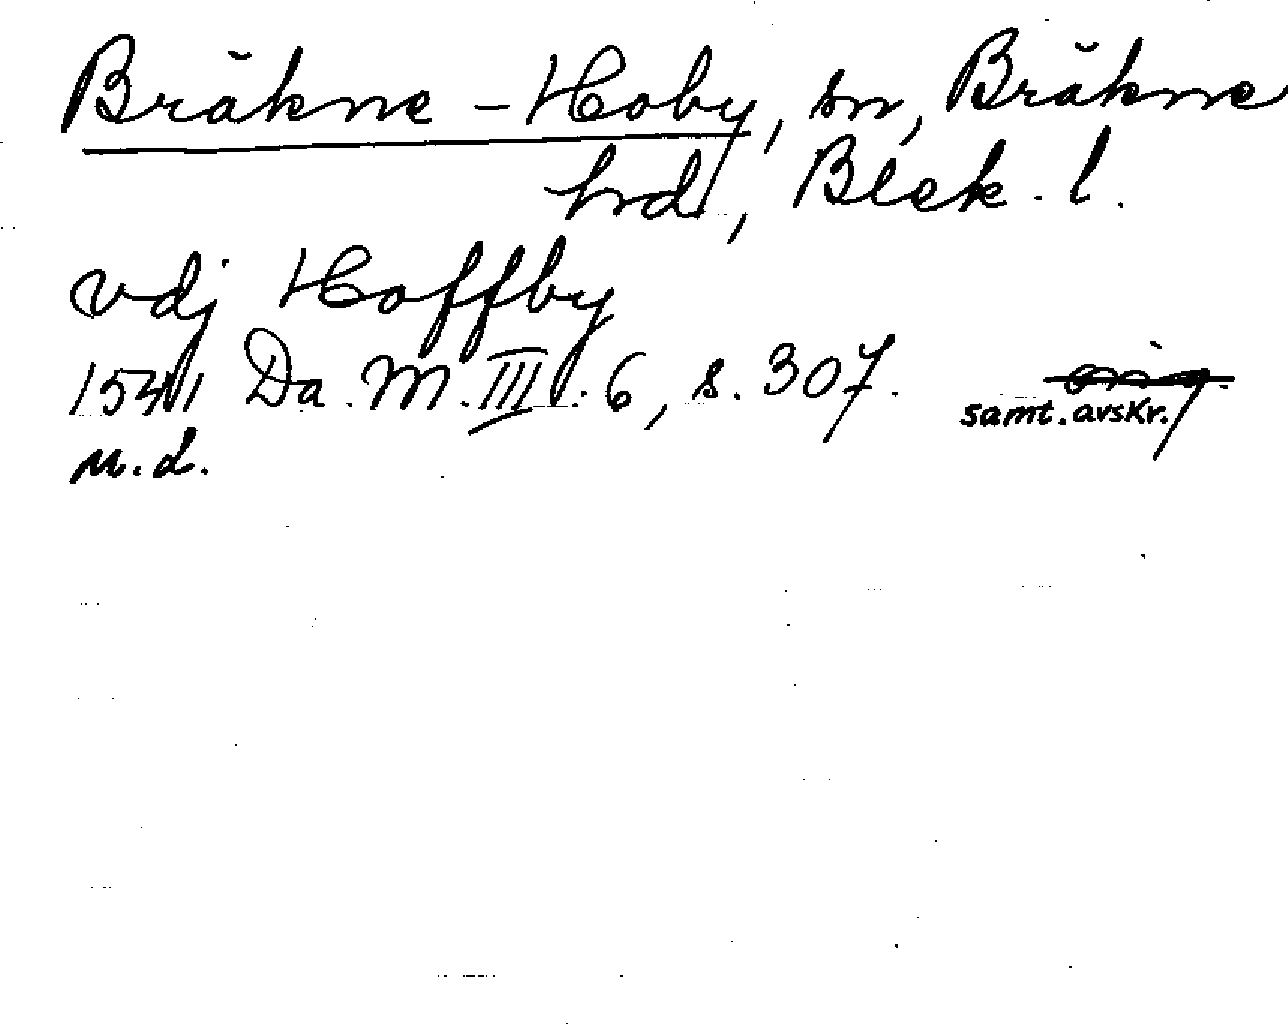 Bräkne-Hoby, sn, Bräkne
hrd, Blek. l.
vdj Hoffby
1541 Da. M. III. 6, s. 307.
samt. avskr.
u. d.